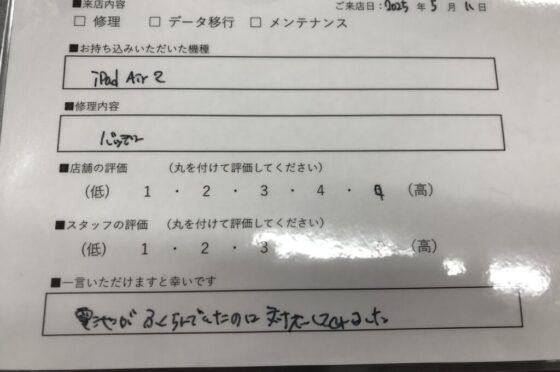 ■来店内容 ご来店日：2025 年 5 月 11 日
□ 修理 □ データ移行 □ メンテナンス
■お持ち込みいただいた機種
iPad Air 2
■修理内容
バッテリー
■店舗の評価 （丸を付けて評価してください）
(低) 1 ・ 2 ・ 3 ・ 4 ・ (高)
■スタッフの評価 （丸を付けて評価してください）
(低) 1 ・ 2 ・ 3 (高)
■一言いただけますと幸いです
電池がふくらんでいたのに対応してくれました